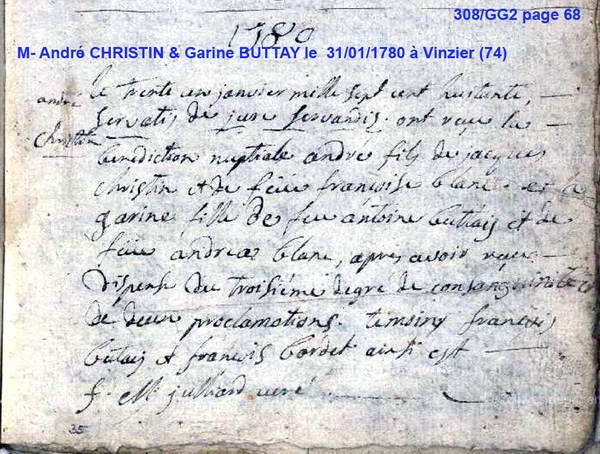 308/GG2 page 68
1780
M- André CHRISTIN & Garine BUTTAY le 31/01/1780 à Vinzier (74)
andré
christin
le trente un janvier mille sept cent huitante,
servatis de jure servandis. ont reçu la
benediction nuptiale andré fils de jacques
christin et de feüe françoise blanc et
garine fille de feu antoine buttais et de
feüe andreaz blanc, apres avoir reçu
dispense du troisiéme degre de consanguinité et
de deux proclamations. temoins françois
butais et françois bordet ainsi est
f. M. julliard curé
35